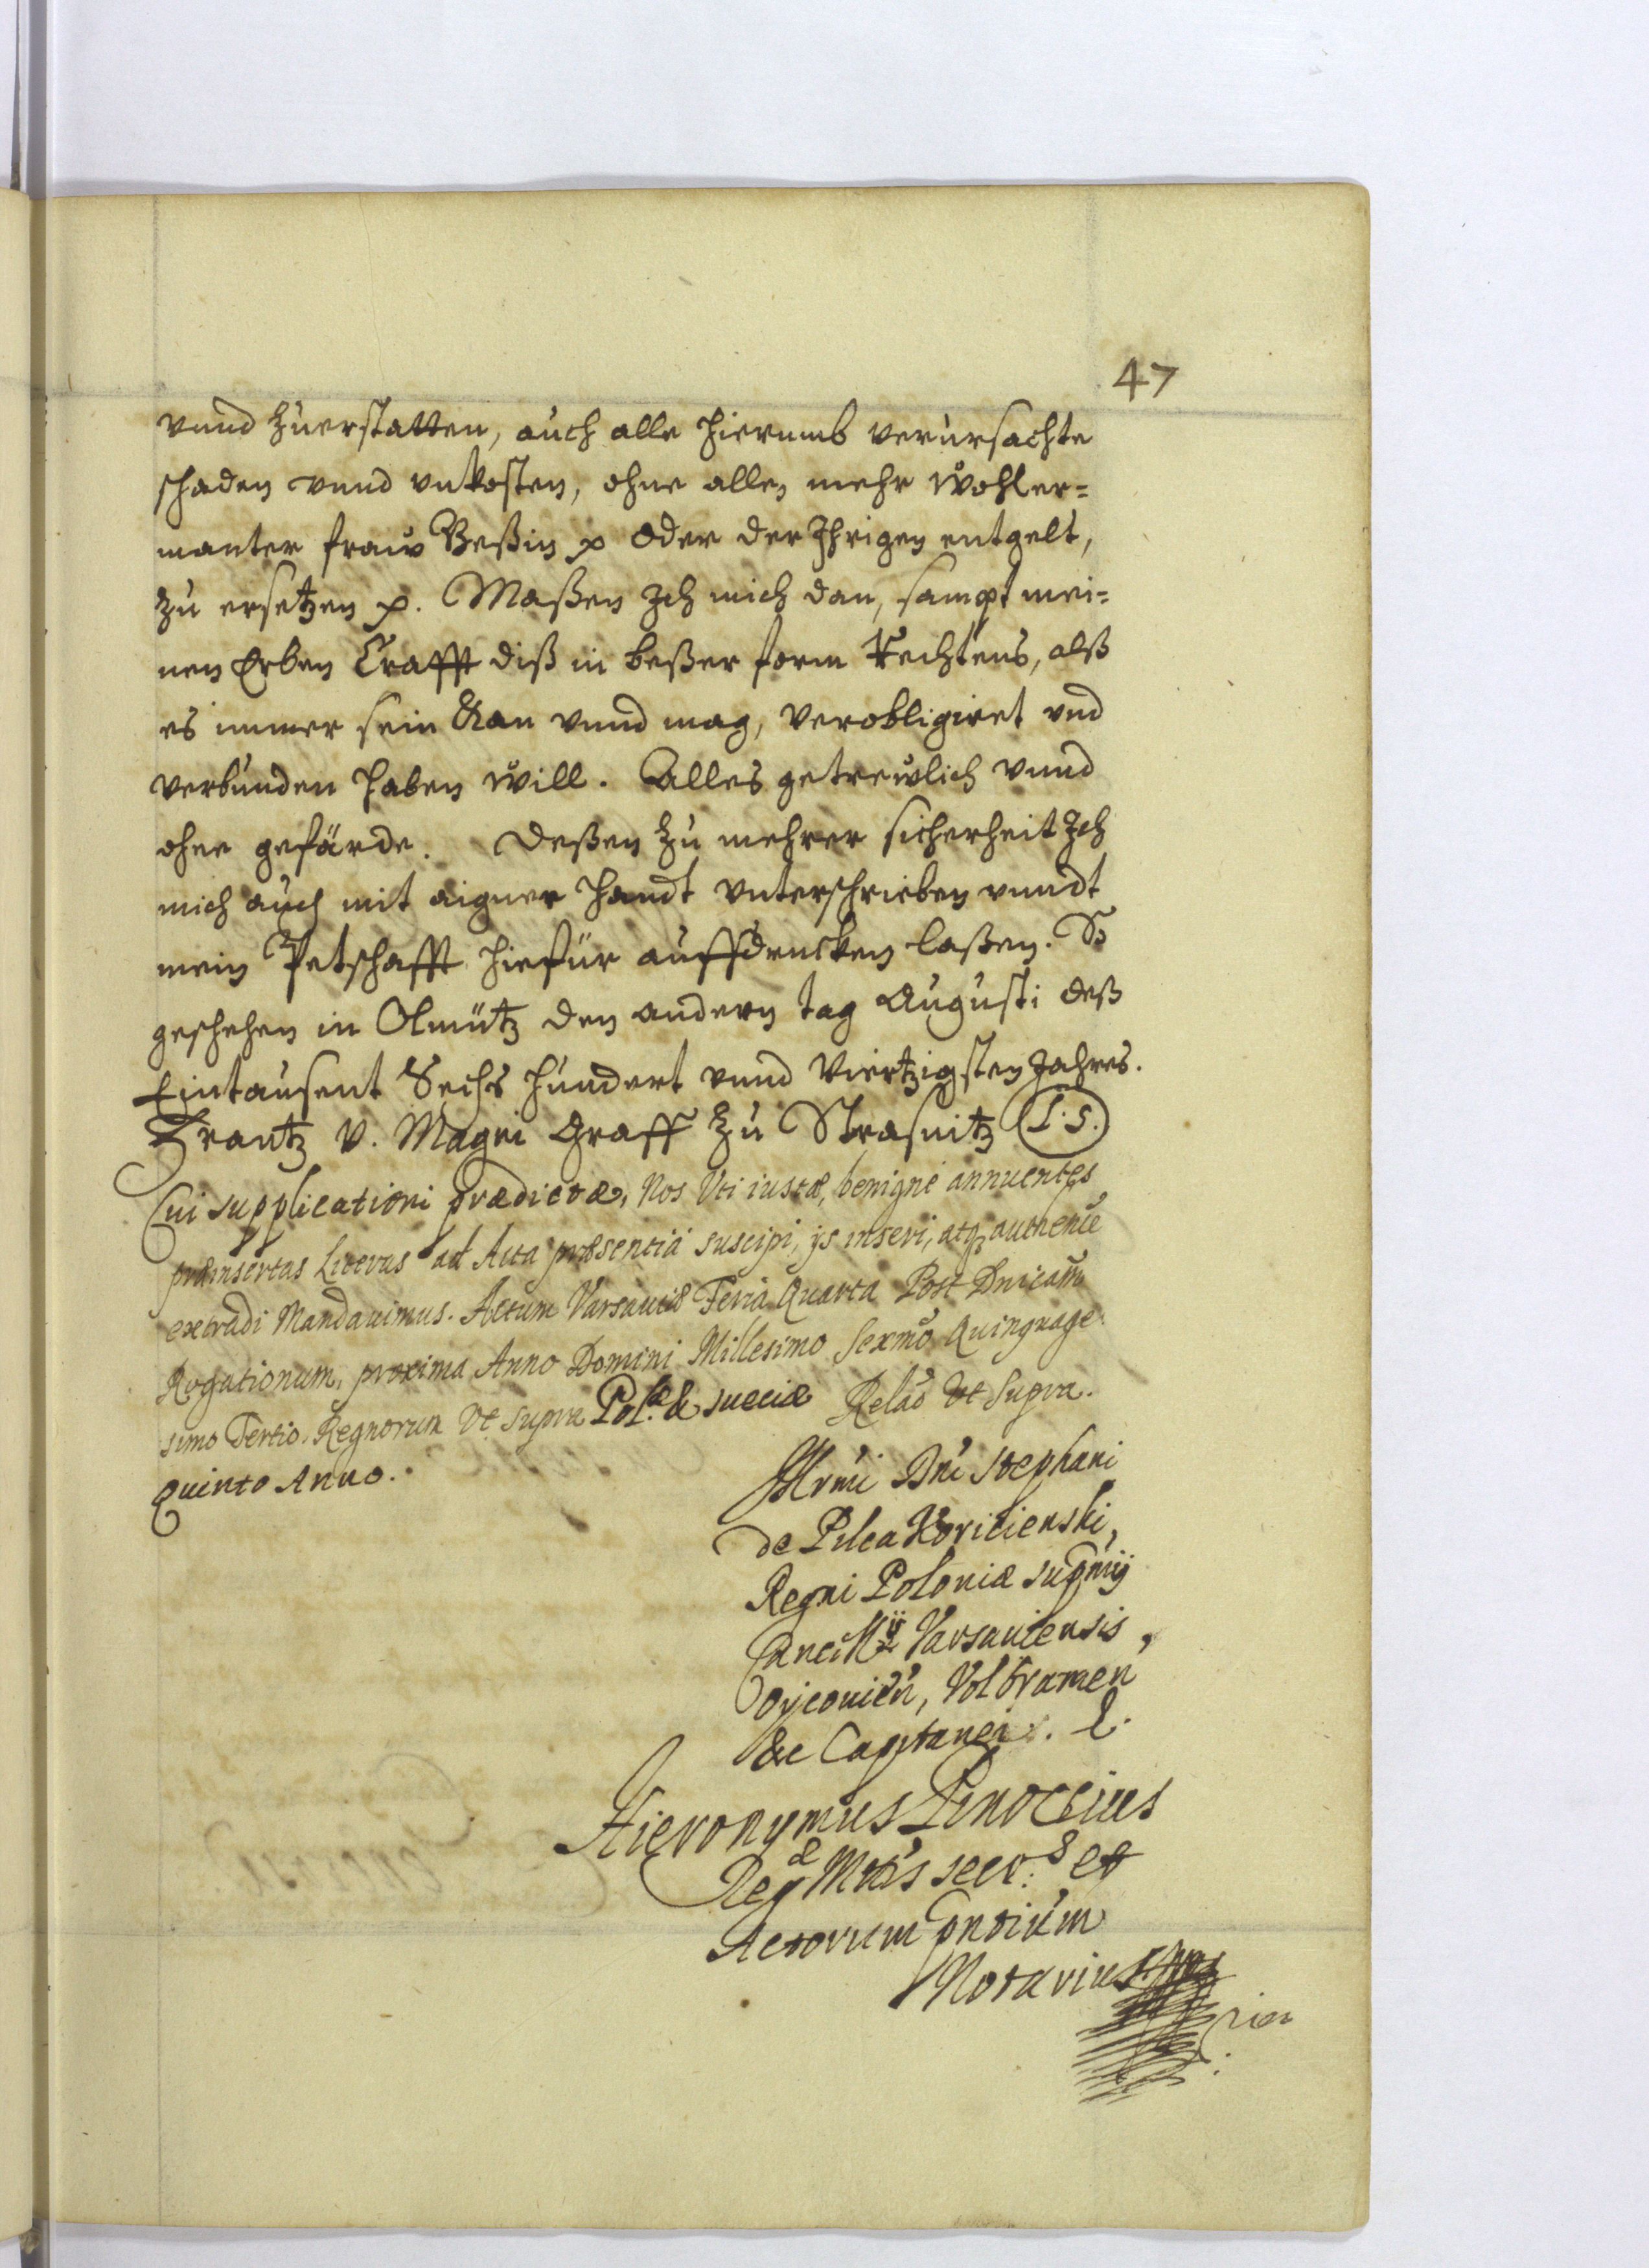 47
vnnd zuerstatten, auch alle hierumb verursachte
schaden vnnd vnkosten, ohne allen mehr wohler=
manter fraw Beßin p oder der Ihrigen entgelt,
zu ersetzen p. Maßen Ich mich dan, sampt mei=
nen Erben Crafft diß in beßer form Rechtens, alß
es immer sein kan vnnd mag, verobligiret vnd
verbunden haben will. Alles getrewlich vnnd
ohne gefärde. Deßen zu mehrer sicherheit Ich
mich auch mit aigner handt vnterschrieben vnndt
mein Petschafft hiefür auffdrucken laßen. So
geschehen in Olmütz den andern tag Augusti deß
Eintausent Sechs hundert vnnd Viertzigsten Jahres.
Frantz v. Magni Graff zu Strasnitz L.S.
Cui supplicationi prædictæ, Nos Uti iustæ, benigne annuentes
præinsertas Literas ad Acta præsentia suscipi, ijs inseri, atq; authentice
extradi Mandauimus. Actum Varsauiæ Feria Quarta Post Dnicam
Rogationum, proxima Anno Domini Millesimo Sexmo Quinquage
simo Tertio. Regnorum Vt supra Pol.æ & sueciæ Relao Vt Supra.
Quinto Anno.
Illrmi Dni Stephani
de Pilca Koricienski,
Regni Poloniæ supmij
Cancillrij Varsauiensis,
Oyconien, Volbramen
&c Capitanei. &.
Hieronymus Pinoccius
Regæ Mtis secr:s et
Actorum pntium
Notarius